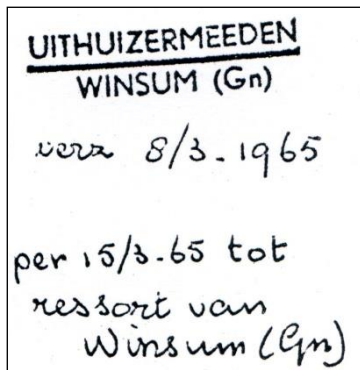 UITHUIZERMEEDEN
WINSUM (Gn)
verz 8/3-1965
per 15/3-65 tot
ressort van
Winsum (Gn)